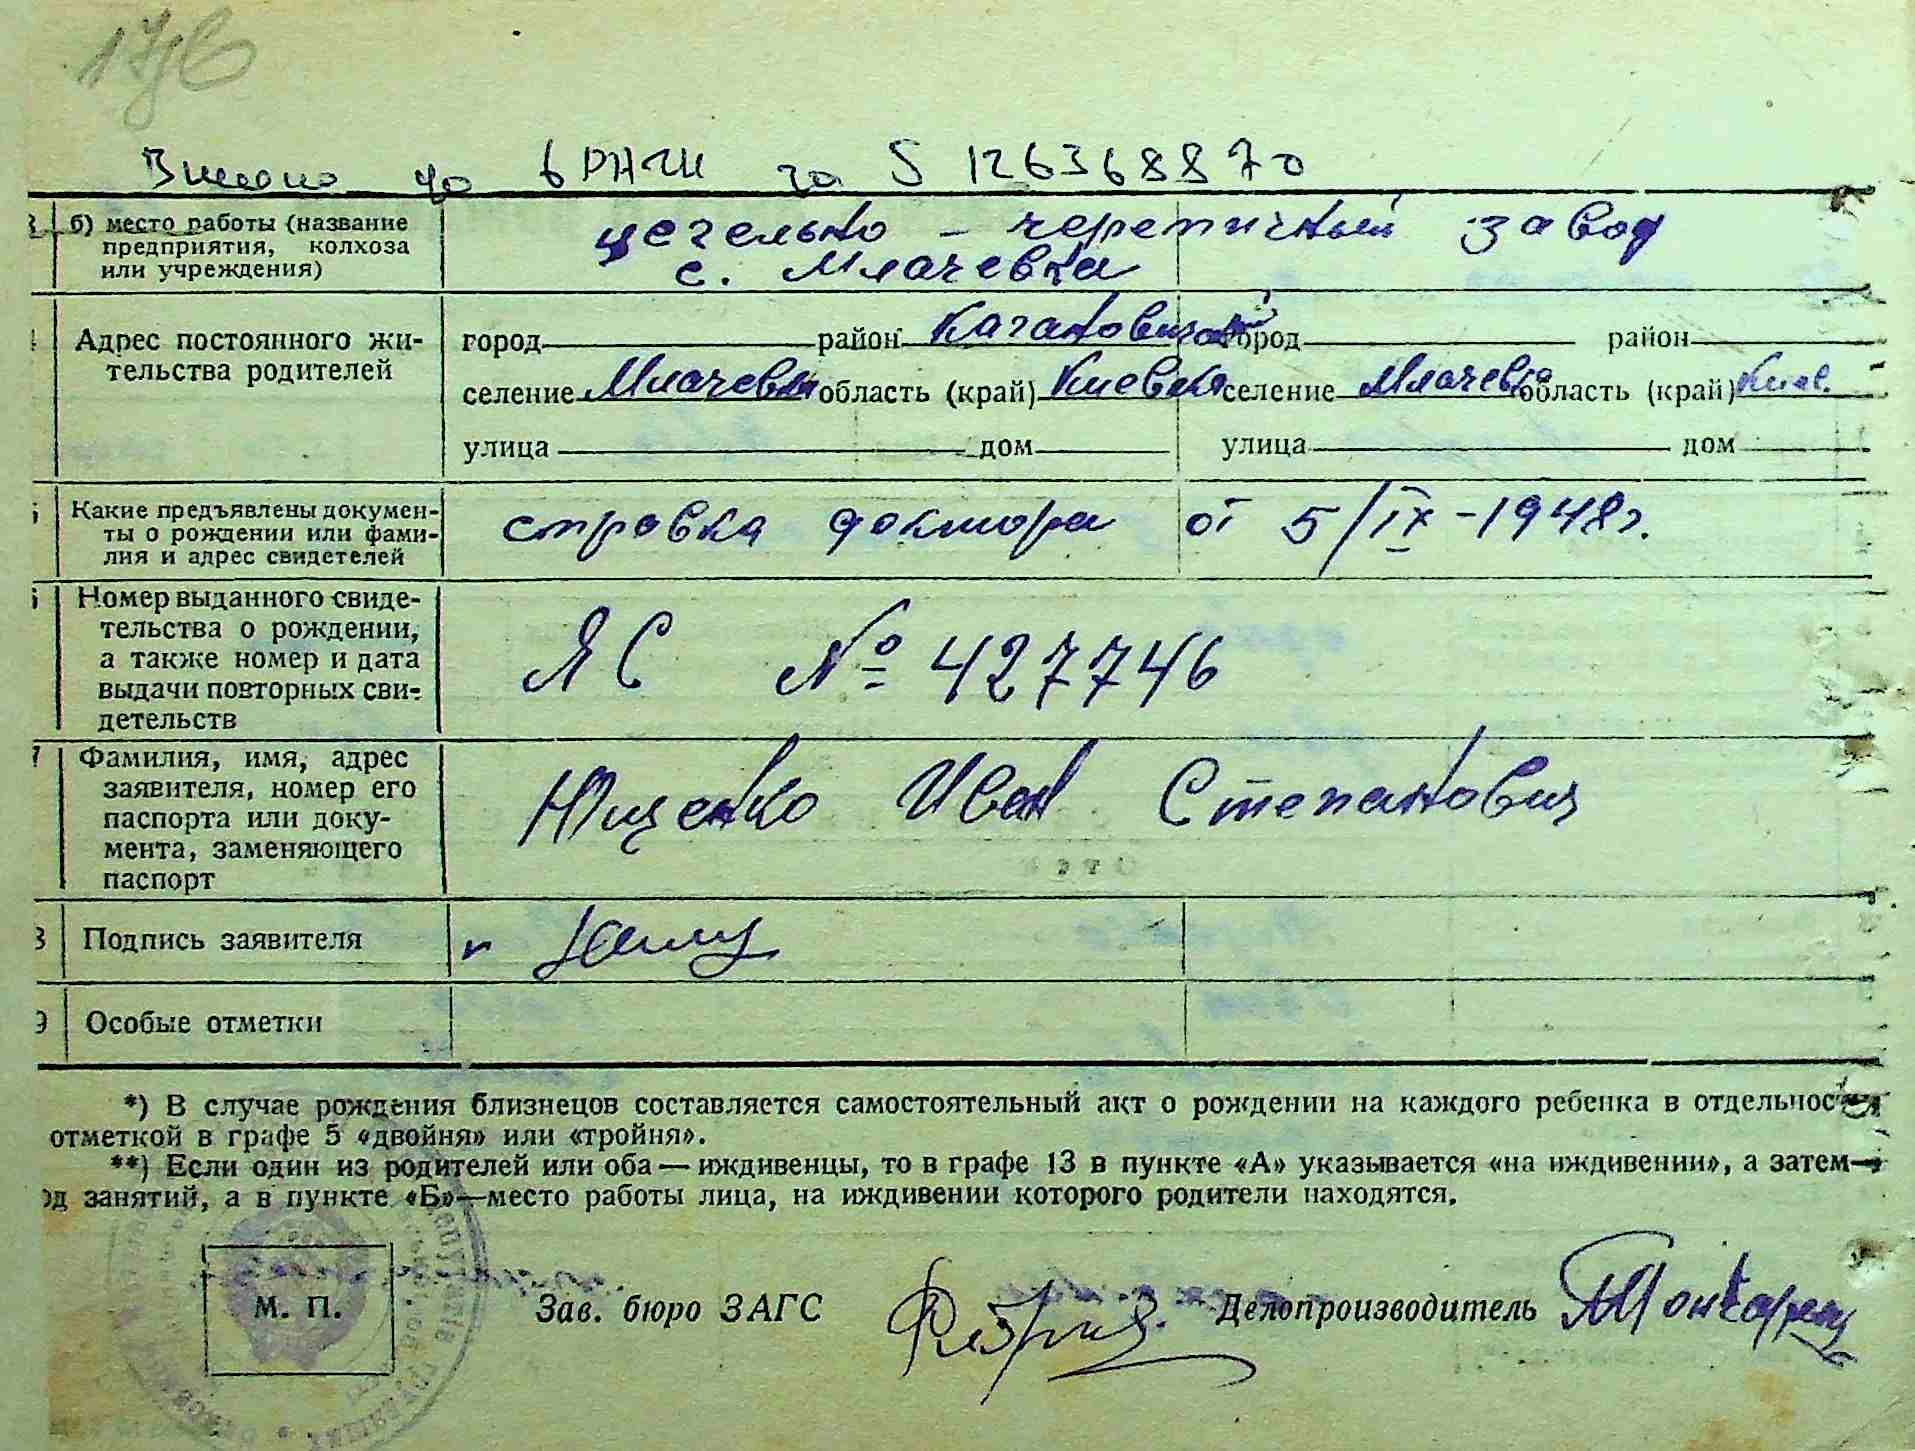 176
Внесено до ЄРАЦС за S 126368870
б) место работы (название предприятия, колхоза или учреждения)
цегельно - черепичный завод
с. Млачевка
Адрес постоянного жительства родителей
город район Кагановичский город район
селение Млачевка область (край) Киевская селение Млачевка область (край) Киев.
улица дом улица дом
Какие предъявлены документы о рождении или фамилия и адрес свидетелей
справка доктора от 5/IX-1948г.
Номер выданного свидетельства о рождении, а также номер и дата выдачи повторных свидетельств
ЯС № 427746
7 Фамилия, имя, адрес заявителя, номер его паспорта или документа, заменяющего паспорт
Ющенко Иван Степанович
Подпись заявителя
9 Особые отметки
*) В случае рождения близнецов составляется самостоятельный акт о рождении на каждого ребенка в отдельнос
отметкой в графе 5 «двойня» или «тройня».
**) Если один из родителей или оба — иждивенцы, то в графе 13 в пункте «А» указывается «на иждивении», а затем—
од занятий, а в пункте «Б»—место работы лица, на иждивении которого родители находятся.
М. П. Зав. бюро ЗАГС Делопроизводитель